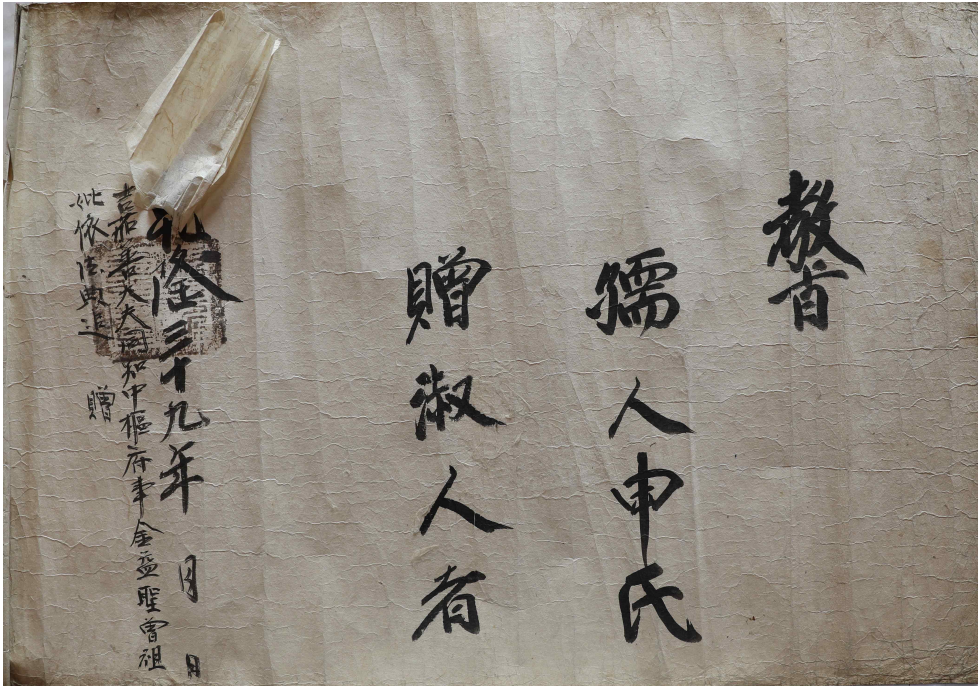 敎旨
孺人申氏
贈淑人者
乾隆三十九年 月 日
嘉善大夫同知中樞府事金益聖曾祖
妣依法典追 贈